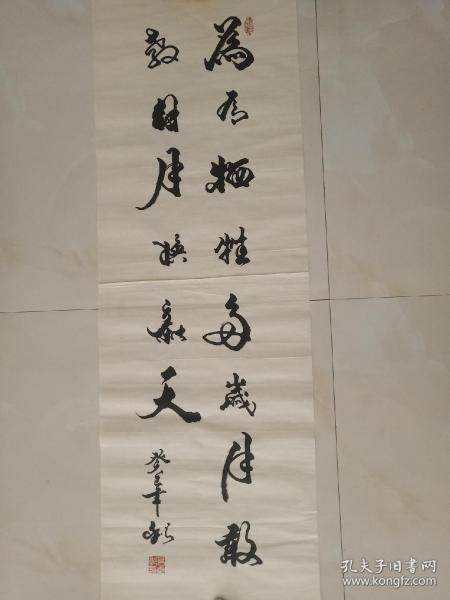 為有牺牲多歲月敢
教月換新天
癸巳年
孔夫子旧书网
www.kongfz.com